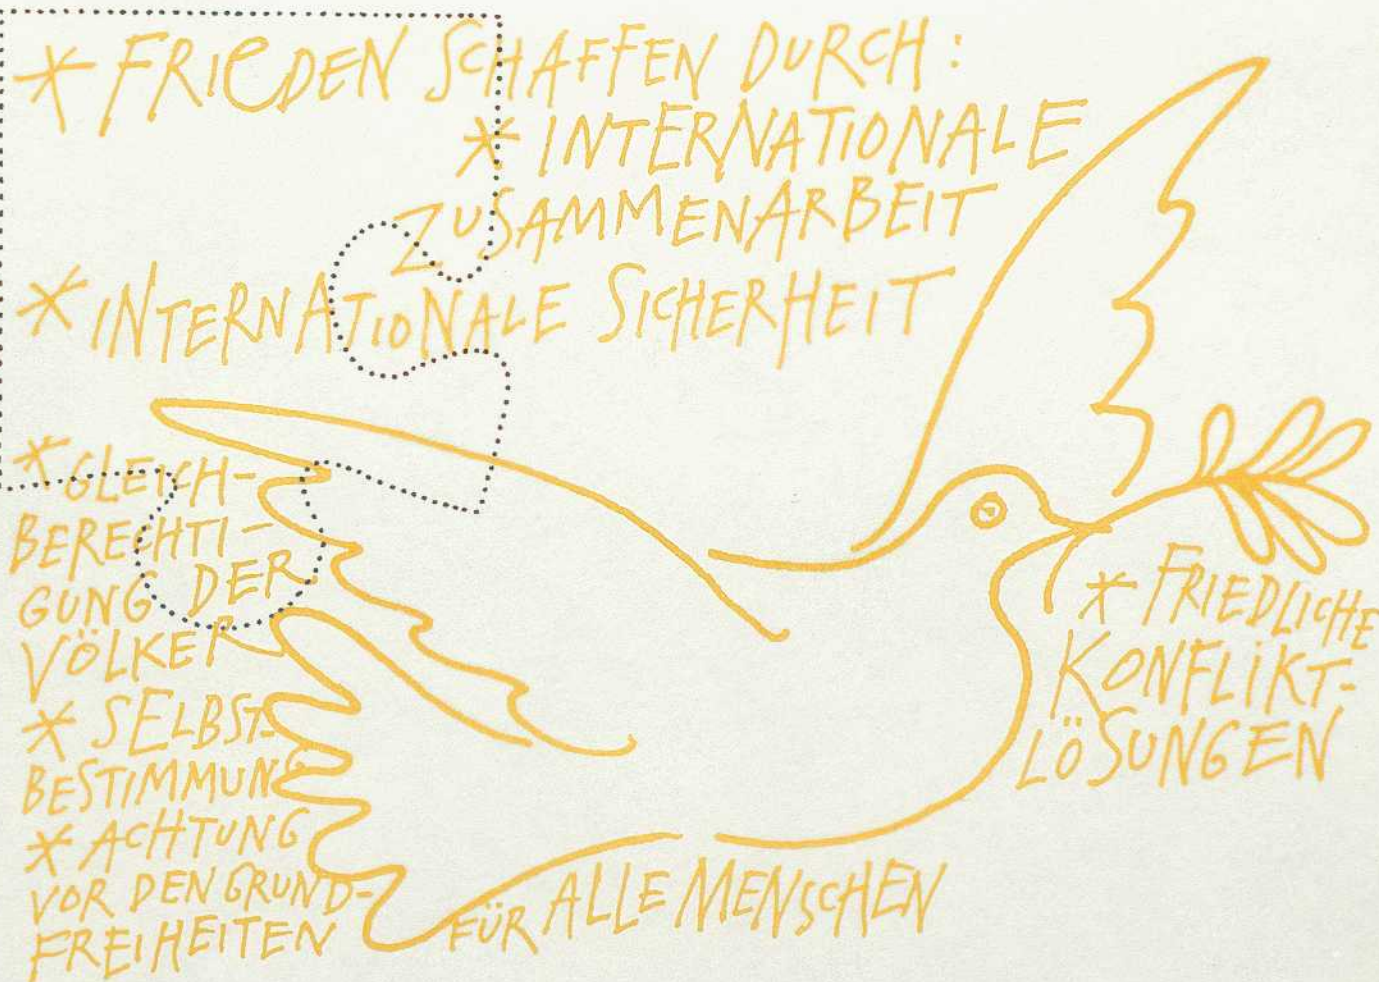 * FRIEDEN SCHAFFEN DURCH:
* INTERNATIONALE
ZUSAMMENARBEIT
* INTERNATIONALE SICHERHEIT
* GLEICH-
BERECHTI-
GUNG DER
VÖLKER
* SELBST-
BESTIMMUNG
* ACHTUNG
VOR DEN GRUND-
FREIHEITEN
FÜR ALLE MENSCHEN
* FRIEDLICHE
KONFLIKT-
LÖSUNGEN